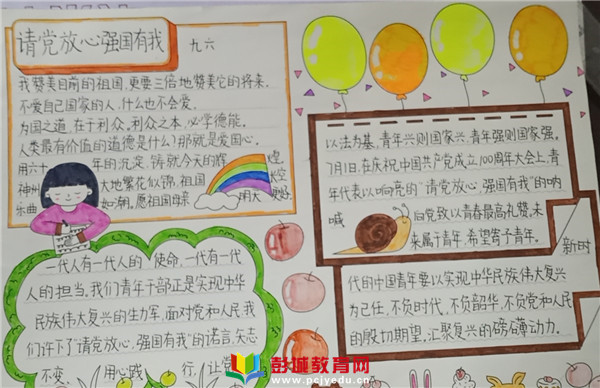 请党放心强国有我
九六
我赞美目前的祖国,更要三倍地赞美它的将来.
不爱自己国家的人,什么也不会爱.
为国之道,在于利众,利众之本,必学德能.
人类最有价值的道德是什么?那就是爱国心.
用六十 年的沉淀,铸就今天的辉煌.
神州大地繁花似锦,祖国长空
乐曲如潮,愿祖国母亲 用大更好.
一代人有一代人的使命,一代有一代
人的担当.我们青年干部正是实现中华
民族伟大复兴的生力军,面对党和人民我
们许下了"请党放心,强国有我"的诺言,矢志
不变. 用心践行,让党
以法为基,青年兴则国家兴,青年强则国家强.
7月1,在庆祝中国共产党成立100周年大会上,青
年代表以响亮的"请党放心,强国有我"的呐
喊 向党致以青春最高礼赞,未
来属于青年,希望寄予青年.
新时
代的中国青年要以实现中华民族伟大复兴
为己任,不负时代,不负韶华,不负党和人民
的殷切期望,汇聚复兴的磅礴动力.
彭城教育网
www.pcjyedu.cn